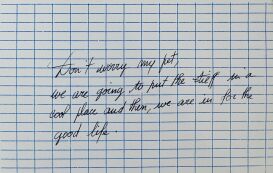 Don't worry my pet,
we are going to put the stuff in a
cool place and then, we are in for the
good life.